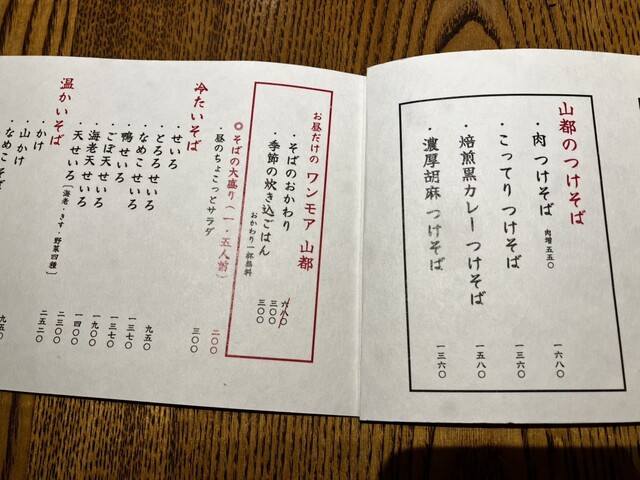 山都のつけそば
・肉つけそば 肉増五五〇 一六八〇
・こってりつけそば 一三六〇
・焙煎黒カレーつけそば 一五八〇
・濃厚胡麻つけそば 一三六〇
お昼だけの ワンモア 山都
・そばのおかわり 六八〇 三〇〇
・季節の炊き込ごはん 三〇〇
おかわり一杯無料
◎そばの大盛り(一・五人前) 二〇〇
・昼のちょこっとサラダ 三〇〇
冷たいそば
・せいろ 九五〇
・とろろせいろ 一三七〇
・なめこせいろ 一三七〇
・鴨せいろ 一九〇〇
・ごぼ天せいろ 一四〇〇
・海老天せいろ 二三〇〇
・天せいろ〔海老・きす・野菜四種〕 二五二〇
温かいそば
・かけ 九五〇
・山かけ
・なめこそば